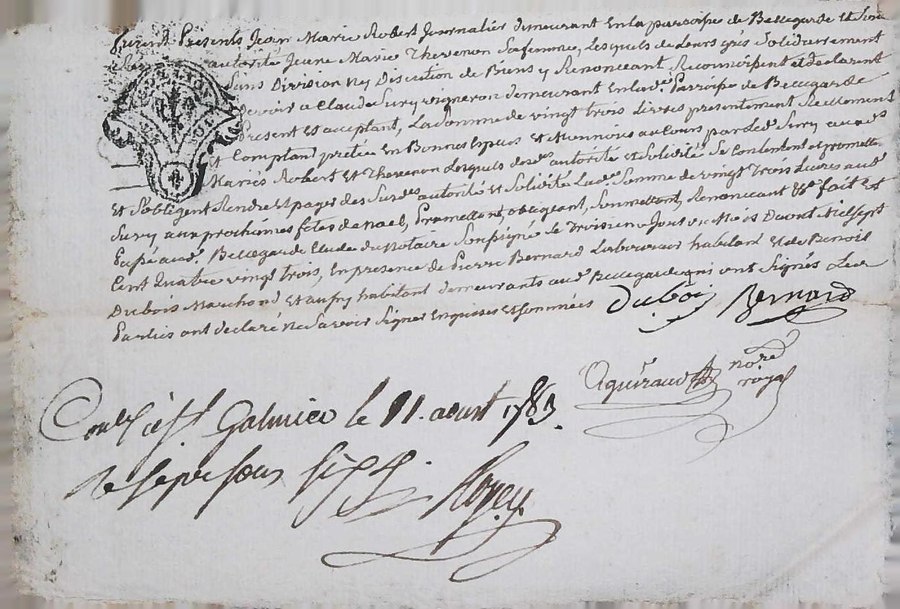 Furent Presents Jean Marie Robert Journalier demeurant En la parroisse de Bellegarde Et sou
autorité Jeane Marie Thevenon Sa femme, Lesquels de Leurs grés Solidairement
Sans Division Ny Discution de Biens y Renonceant, Reconnoissent et declarent
Devoir a Claude Sury vigneron demeurant En lad.e Parroisse de Bellegarde
Present Et acceptant, La Somme de vingt trois Livres presentement Reellement
Et Comptant pretée En Bonnes Especes Et Monnoye au Cours par led. Sury
Mariés Robert Et Thevenon Lesquels autorité et Solidité Se Contentent et promettent
Et S'obligent Rendre et payer des Susd. autorité et Solidité Lad. Somme de vingt Trois Livres aud.
Sury aux prochaines fêtes de Noel, Promettant, obligeant, Soumettant, Renonceant &a fait Et
Passé aud. Bellegarde Etude du Notaire Soussigné le Troisieme Jour du Mois D'aout Mil Sept
Cent Quatre vingt trois, En presence de Pierre Bernard Laboureur habitant et de Benoit
Dubois Marchand Et habitant demeurants aud. Bellegarde qui ont Signés Les
Parties ont déclaré Ne Savoir Signer Enquises Et Sommées Duboi Bernard
nore
royal
Galmier le 11. aoust 1783.